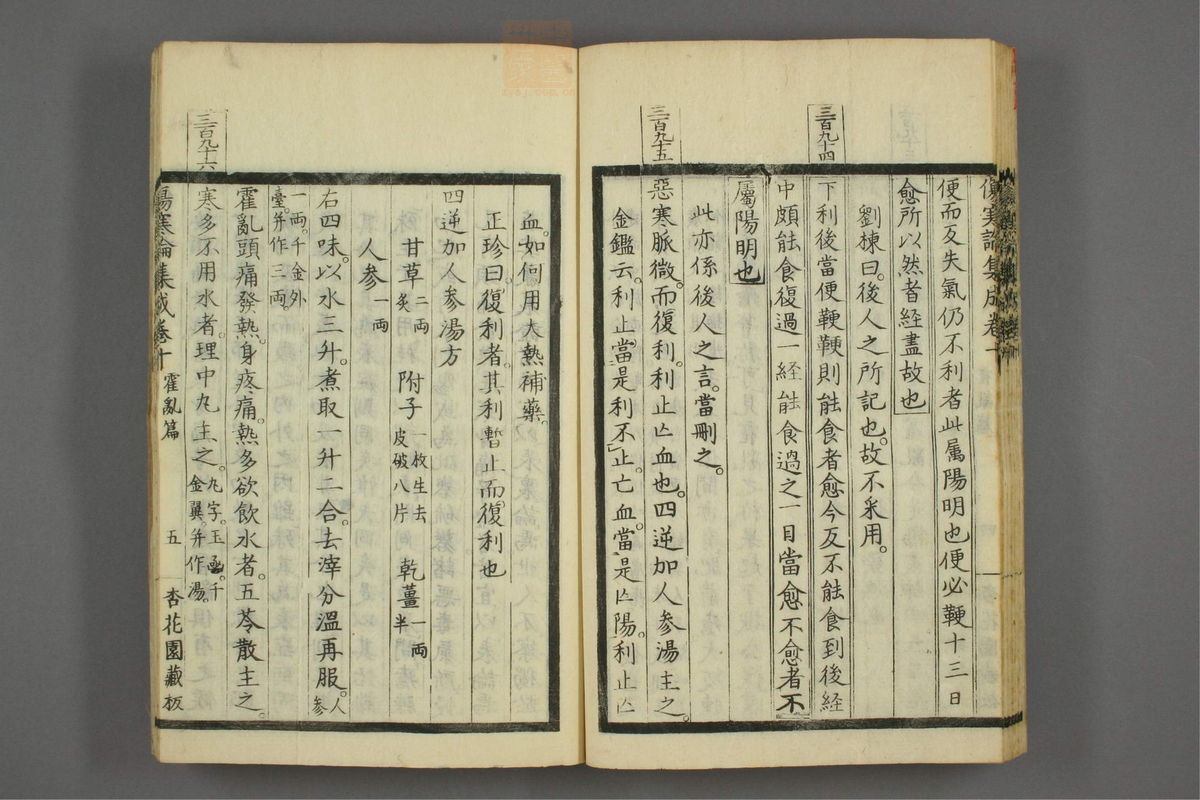 傷寒論集成卷十
便而反失氣仍不利者此属陽明也便必鞕十三日
愈所以然者經盡故也
劉棟曰。後人之所記也。故不采用。
三百九十四
下利後當便鞕鞕則能食者愈今反不能食到後経
中頗能食復過一経能食過之一日當愈不愈者不
屬陽明也
此亦係後人之言。當刪之。
三百九十五
惡寒脈微。而復利。利止亡血也。四逆加人参湯主之。
金鑑云。利止。當是利不止。亡血。當是亡陽。利止亡
血。如何用大熱補藥。
正珍曰。復利者。其利暫止而復利也
四逆加人参湯方
甘草二両炙 附子一枚生去皮破八片 乾薑一両半
人参一両
右四味。以水三升。煮取一升二合。去滓分溫再服。人参
一両。千金外
臺。并作三両。
霍亂頭痛發熱。身疼痛。熱多欲飲水者。五苓散主之。
三百九十六
寒多不用水者。理中丸主之。丸字。玉函。千金翼。并作湯。
傷寒論集成卷十 霍亂篇 五 杏花園藏板